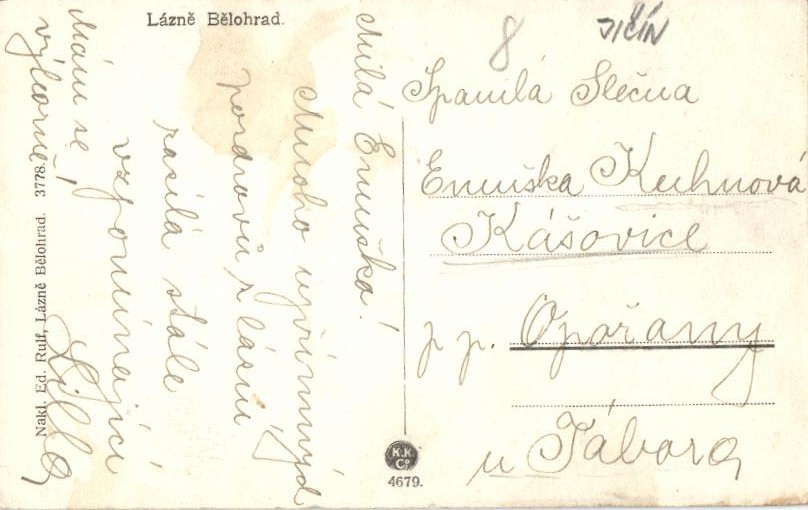 Lázně Bělohrad.
8
JIČÍN
Milá Emuška!
Mnoho upřímných
pozdravů z lásní
zasílá stále
vzpomínající
Lilla
Mám se
výborně!
Nakl. Ed. Rulf, Lázně Bělohrad. 3778.
Spanilá Slečna
Emuška Kuhnová
Kášovice
p. p. Opařany
u Tábora
K.K
Co
4679.